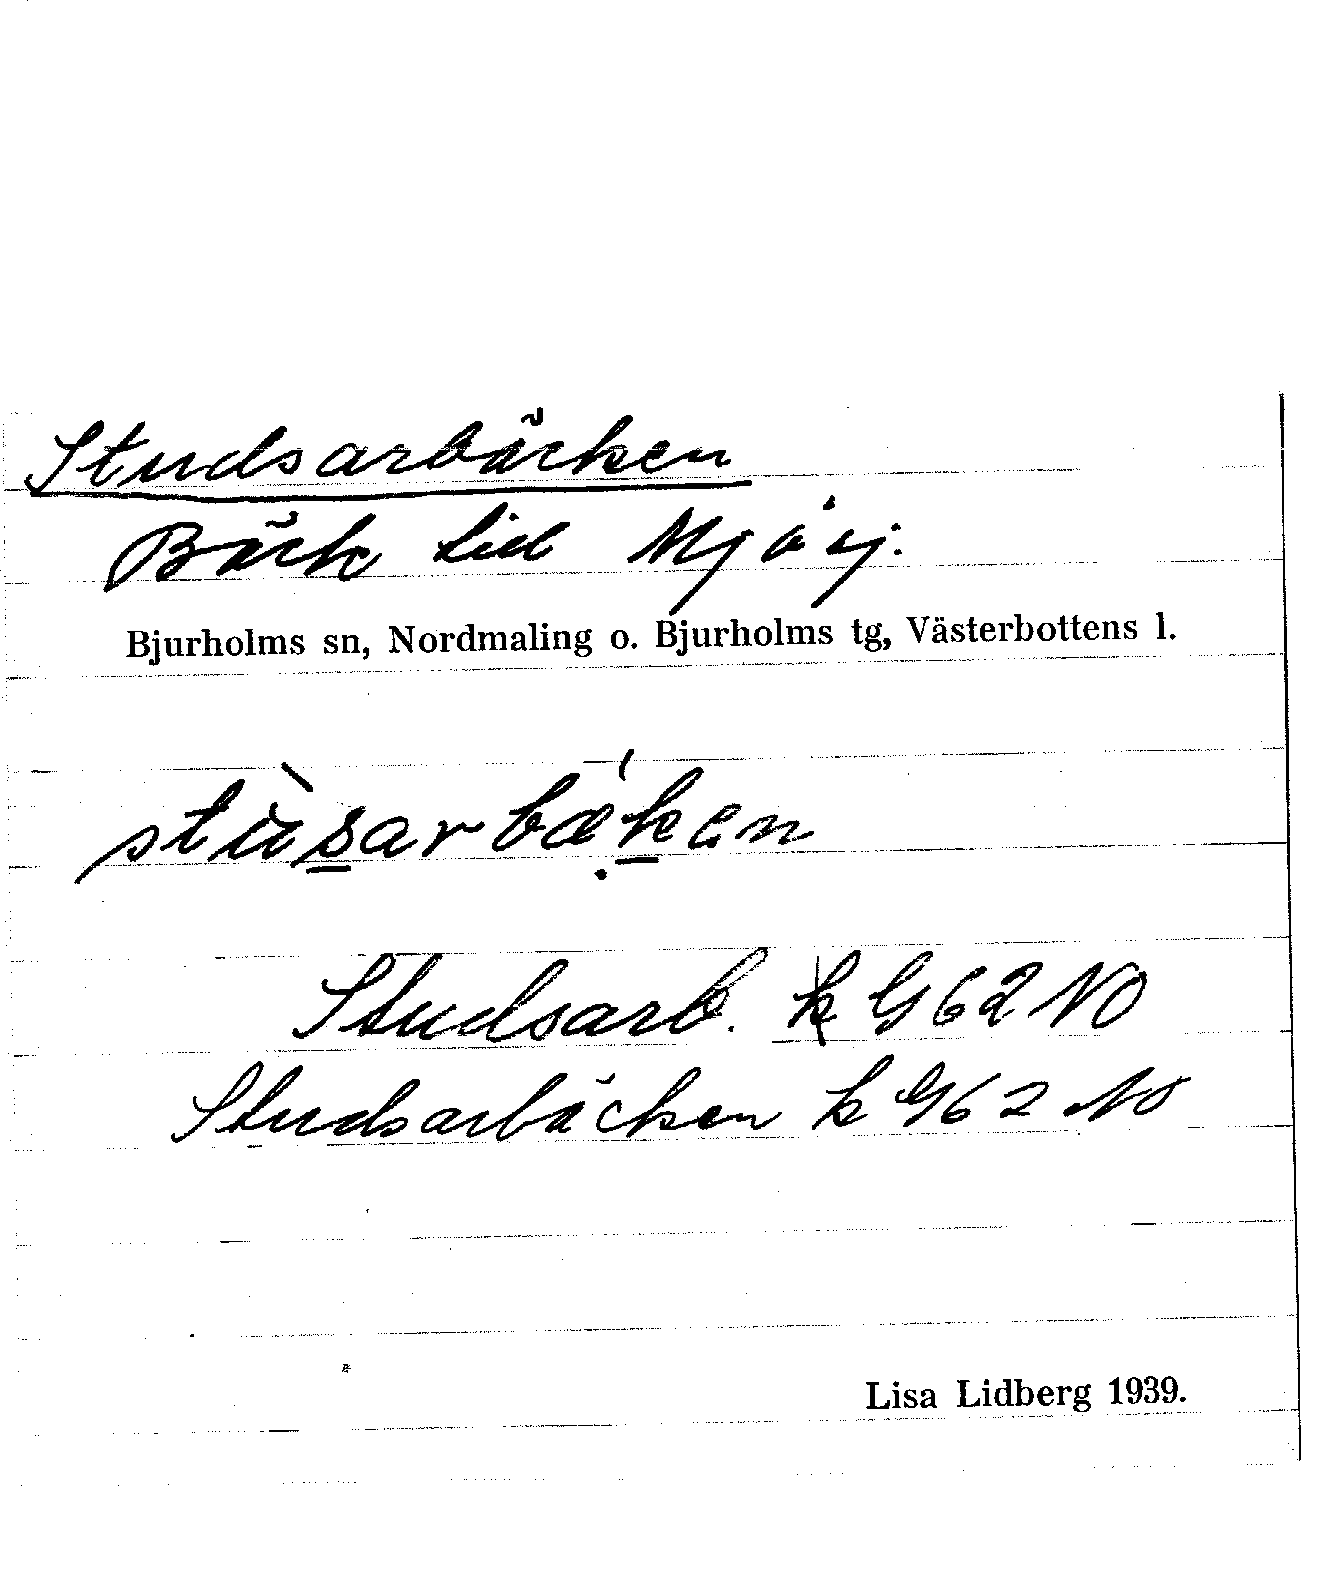 Studsarbäcken
Bäck till Mjösj.
Bjurholms sn, Nordmaling o. Bjurholms tg, Västerbottens l.
stùsarbǽ̣ken
Studsarb. k G62 NO
Studsarbäcken k G62 NO
Lisa Lidberg 1939.